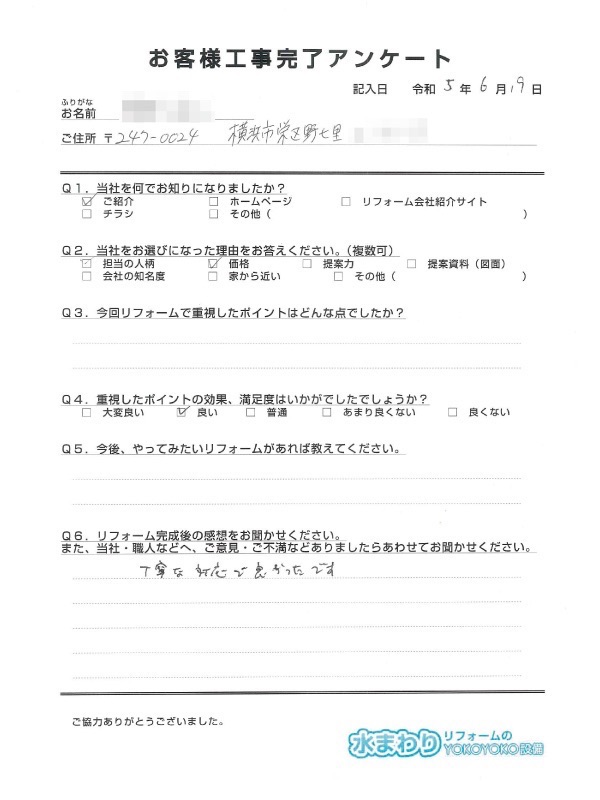 お客様工事完了アンケート
記入日 令和 5 年 6 月 19 日
ふりがな
お名前
ご住所 〒247-0024 横浜市栄区野七里
Q1. 当社を何でお知りになりましたか?
☑ ご紹介 □ ホームページ □ リフォーム会社紹介サイト
□ チラシ □ その他( )
Q2. 当社をお選びになった理由をお答えください。(複数可)
☑ 担当の人柄 ☑ 価格 □ 提案力 □ 提案資料(図面)
□ 会社の知名度 □ 家から近い □ その他( )
Q3. 今回リフォームで重視したポイントはどんな点でしたか?
Q4. 重視したポイントの効果、満足度はいかがでしたでしょうか?
□ 大変良い ☑ 良い □ 普通 □ あまり良くない □ 良くない
Q5. 今後、やってみたいリフォームがあれば教えてください。
Q6. リフォーム完成後の感想をお聞かせください。
また、当社・職人などへ、ご意見・ご不満などありましたらあわせてお聞かせください。
丁寧な対応で良かったです
ご協力ありがとうございました。
水まわりリフォームのYOKOYOKO設備